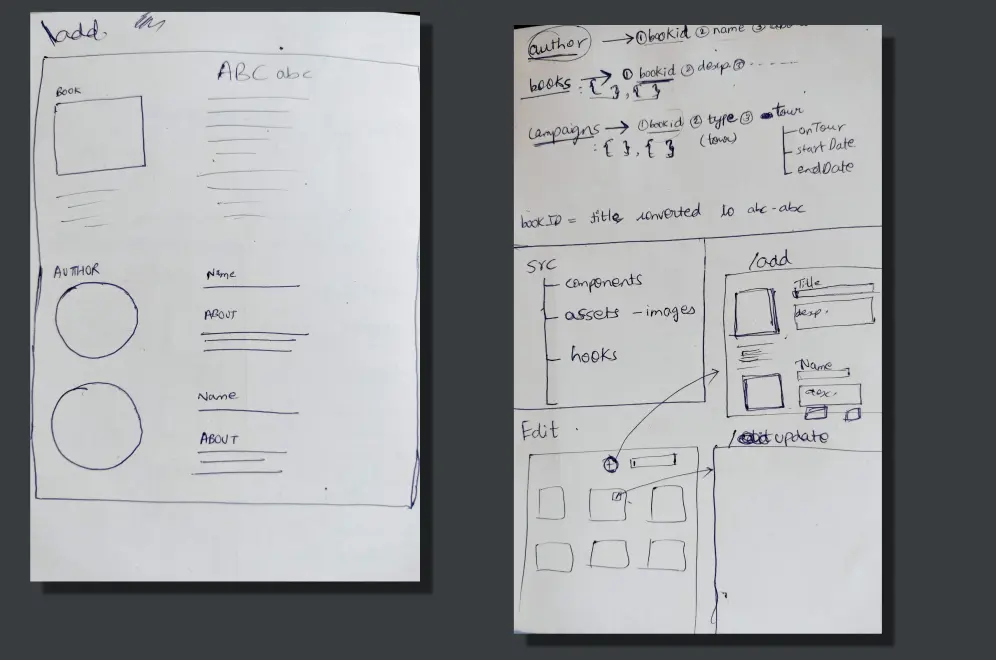 \add.
ABC abc
BOOK
AUTHOR
Name
ABOUT
Name
ABOUT
author → ① bookid ② name ③
books → ① bookid ② desp. ③ ......
: { } , { }
campaigns → ① bookid ② type ③ tour
: { } , { } (tour)
onTour
start Date
endDate
book ID = title converted to abc-abc
src
components
assets - images
hooks
/add
Title
desp.
Name
Edit
+
/ update